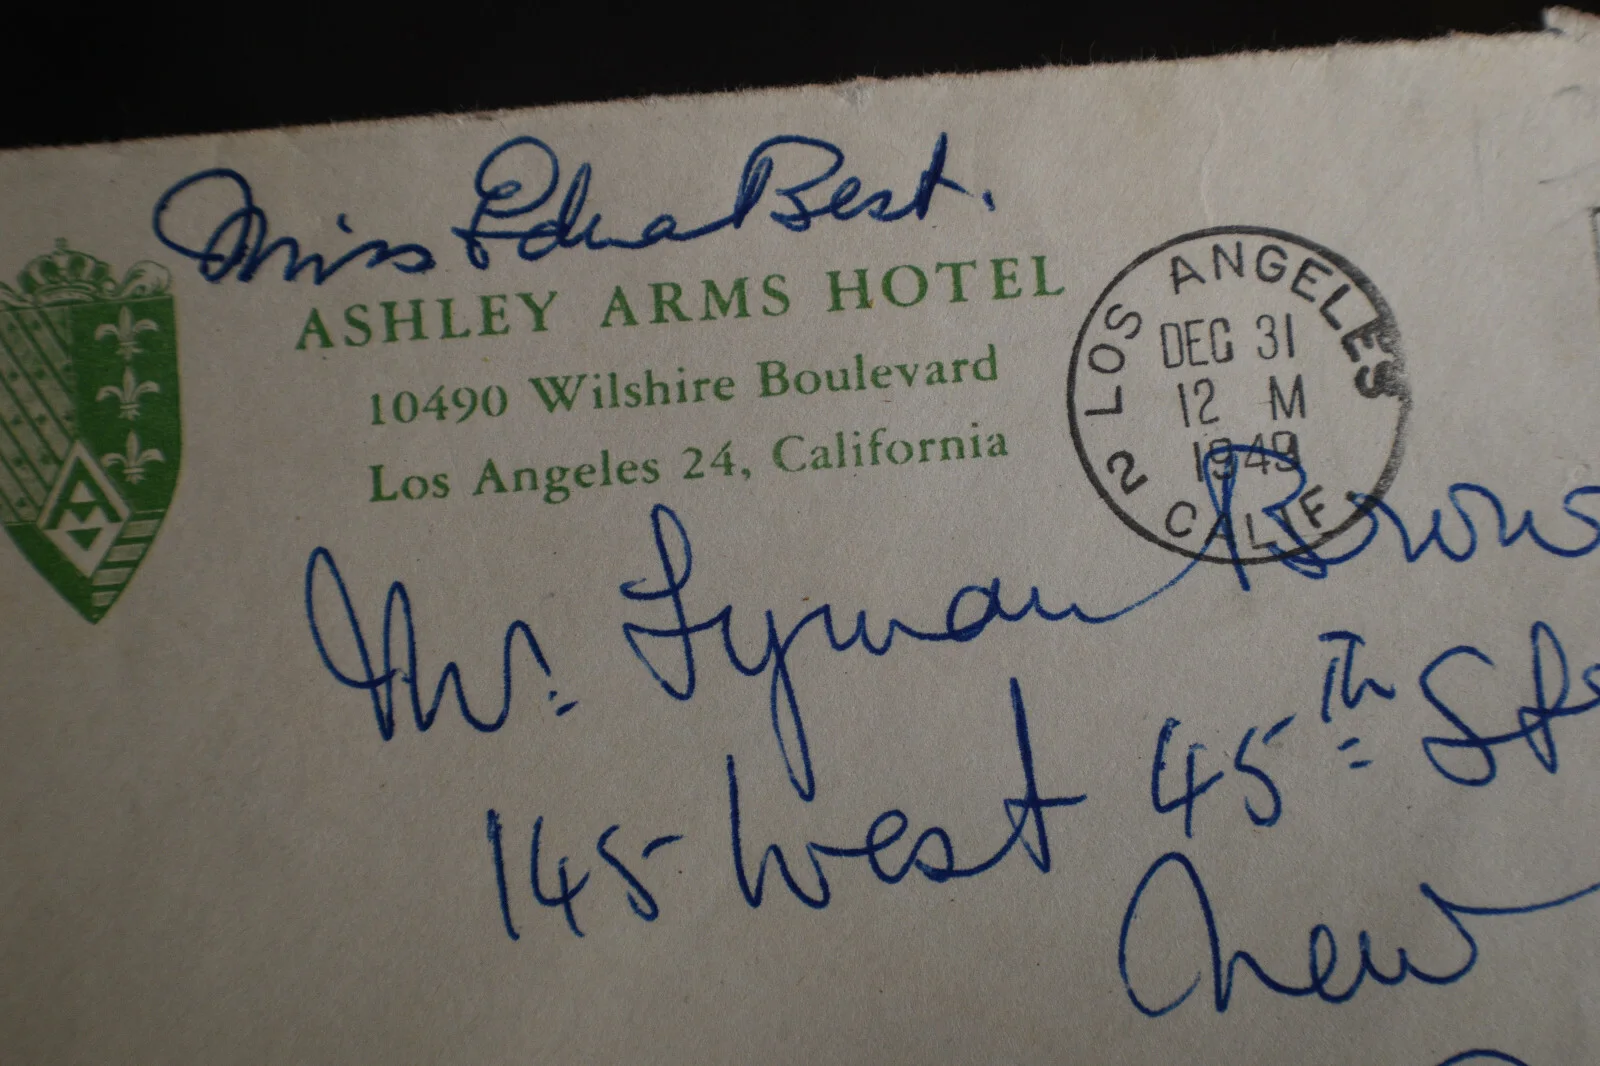 Miss Edna Best.
ASHLEY ARMS HOTEL
10490 Wilshire Boulevard
Los Angeles 24, California
LOS ANGELES
DEC 31
12 M
1949
2 CALIF.
Mr. Lyman Brown
145 West 45th St
New